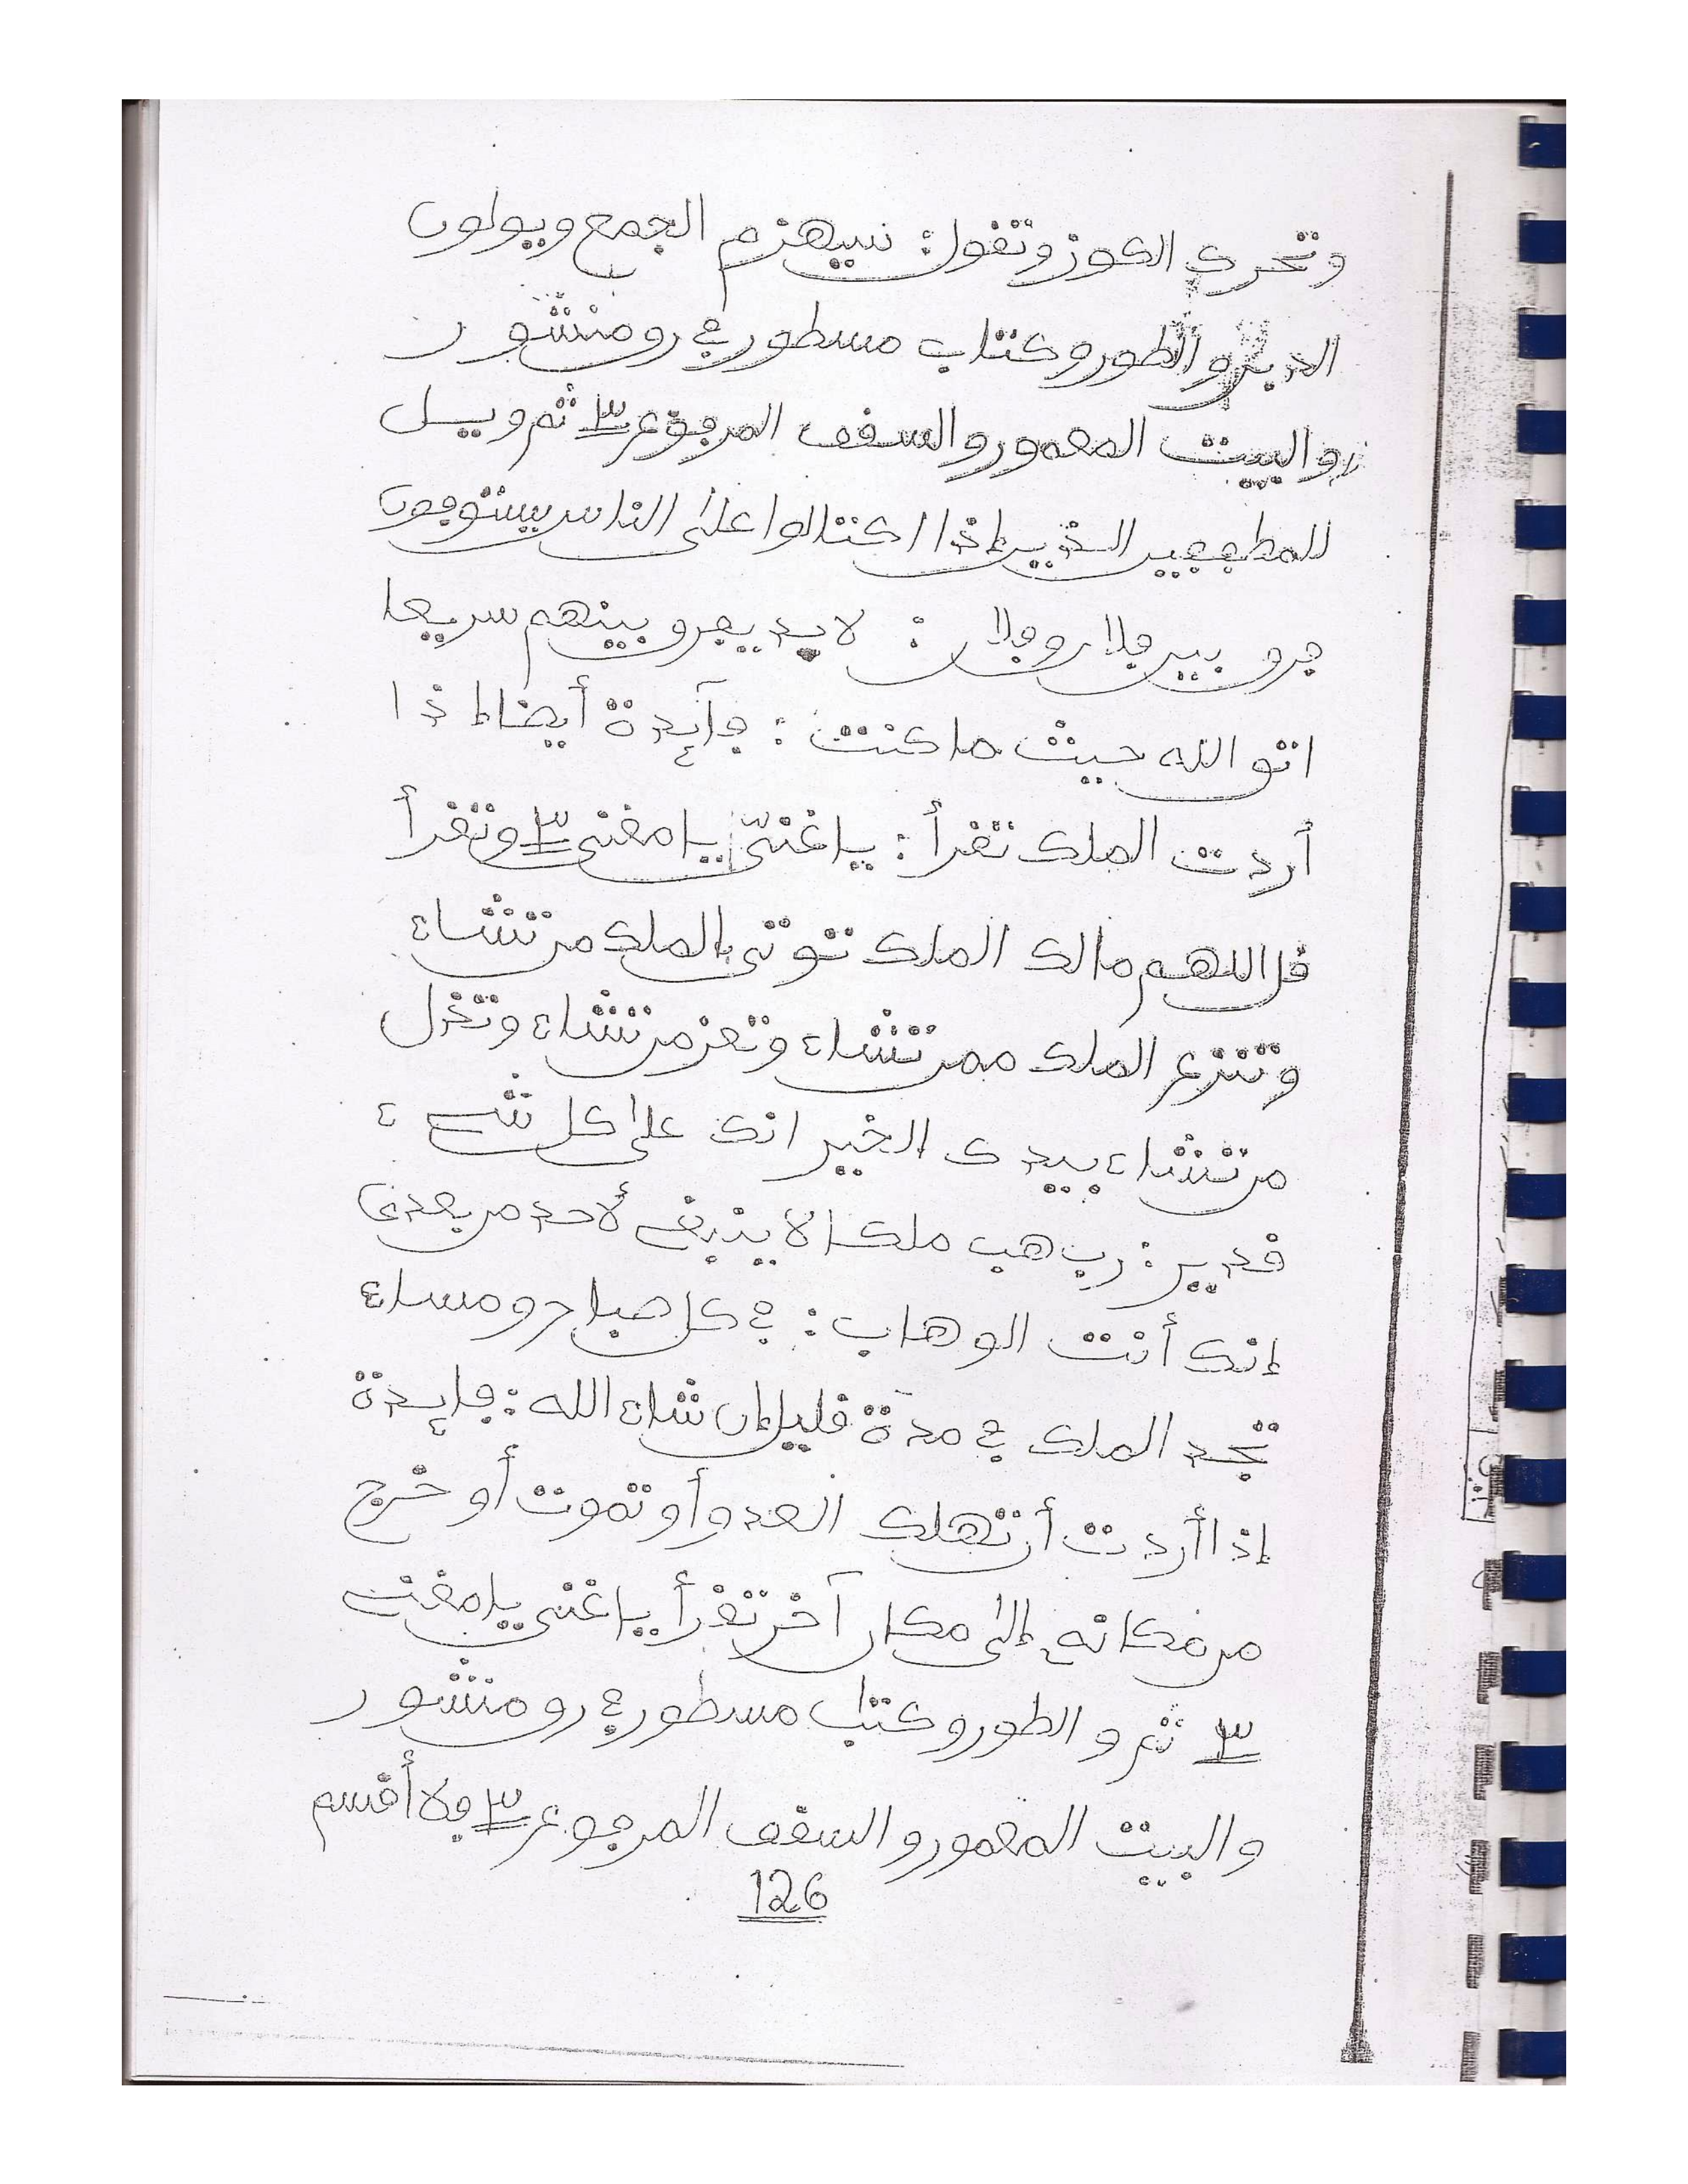 وتحرك الكوز وتقول: سيهزم الجمع ويولون
الدبر والطور وكتاب مسطور في رق منشور
والبيت المعمور والسقف المرفوع ٣ ثم ويل
للمطففين الذين إذا اكتالوا على الناس يستوفون
فرق بين فلان وفلان: لابد يفرق بينهم سريعا
اتق الله حيث ما كنت: فآيدة أيضا إذا
أردت الملك تقرأ: يا غنيّ يا مغني ٣ وتقرأ
قل اللهم مالك الملك توتي الملك من تشاء
وتنزع الملك ممن تشاء وتعز من تشاء وتذل
من تشاء بيدك الخير انك على كل شيء
قدير: رب هب ملكا لا ينبغي لأحد من بعدي
إنك أنت الوهاب: في كل صباح ومساء
تجد الملك في مدة قليل إن شاء الله: فايدة
إذا أردت أن تهلك العدو أو تموت أو خرج
من مكانه إلى مكان آخر تقرأ يا غني يا مغني
٣ ثم والطور وكتاب مسطور في رق منشور
والبيت المعمور والسقف المرفوع ٣ فلا أقسم
126